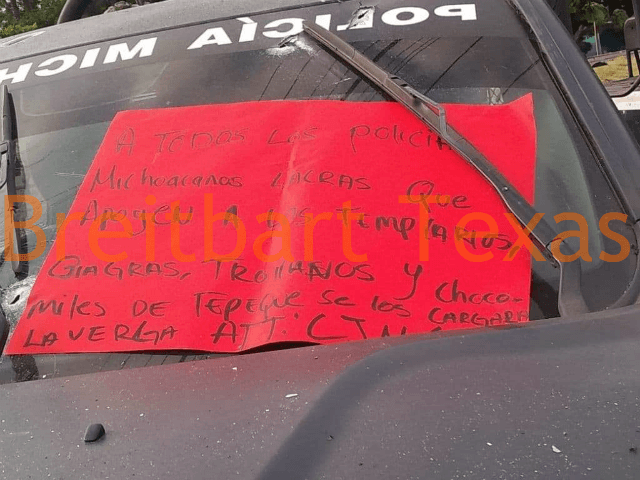 POLICÍA MICH
A TODOS LOS POLICIA
MICHOACANOS LACRAS QUE
APOYEN A LOS TEMPLARIOS
Breitbart Texas
GIAGRAS, TROLLANOS Y CHOCO-
MILES DE TEPEQUE SE LOS CARGARA
LA VERGA ATT: